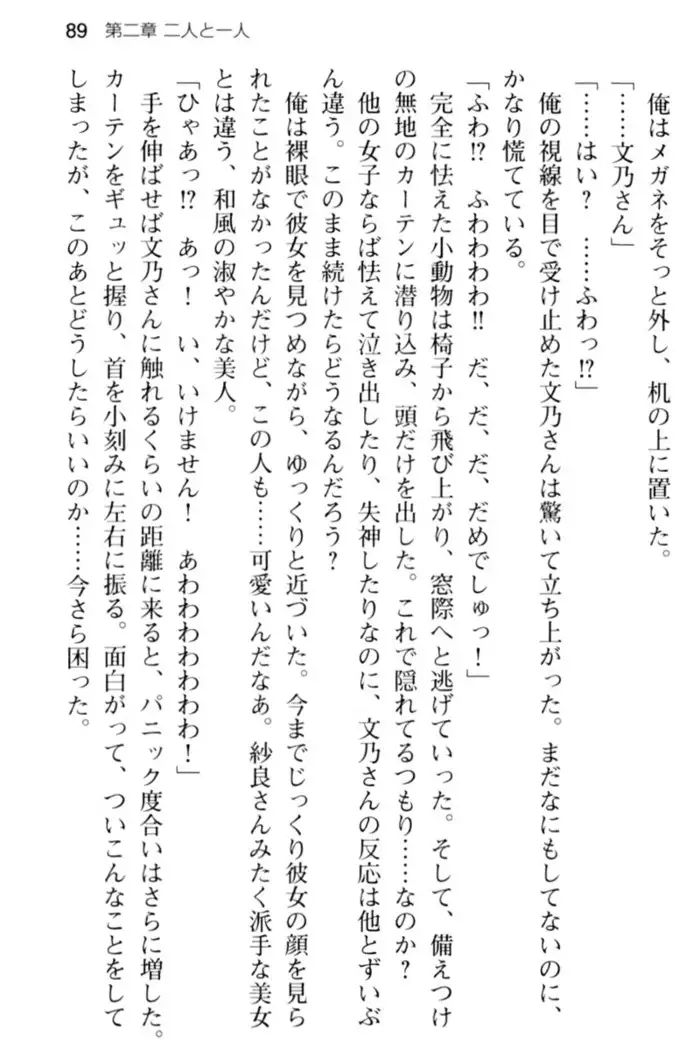 89 第二章 二人と一人
俺はメガネをそっと外し、机の上に置いた。
「……文乃さん」
「……はい？　……ふわっ!?」
俺の視線を目で受け止めた文乃さんは驚いて立ち上がった。まだなにもしてないのに、
かなり慌てている。
「ふわ!?　ふわわわわ!!　だ、だ、だ、だめでしゅっ！」
完全に怯えた小動物は椅子から飛び上がり、窓際へと逃げていった。そして、備えつけ
の無地のカーテンに潜り込み、頭だけを出した。これで隠れてるつもり……なのか？
他の女子ならば怯えて泣き出したり、失神したりなのに、文乃さんの反応は他とずいぶ
ん違う。このまま続けたらどうなるんだろう？
俺は裸眼で彼女を見つめながら、ゆっくりと近づいた。今までじっくり彼女の顔を見ら
れたことがなかったんだけど、この人も……可愛いんだなあ。紗良さんみたく派手な美女
とは違う、和風の淑やかな美人。
「ひゃあっ!?　あっ！　い、いけません！　あわわわわわわわ！」
手を伸ばせば文乃さんに触れるくらいの距離に来ると、パニック度合いはさらに増した。
カーテンをギュッと握り、首を小刻みに左右に振る。面白がって、ついこんなことをして
しまったが、このあとどうしたらいいのか……今さら困った。